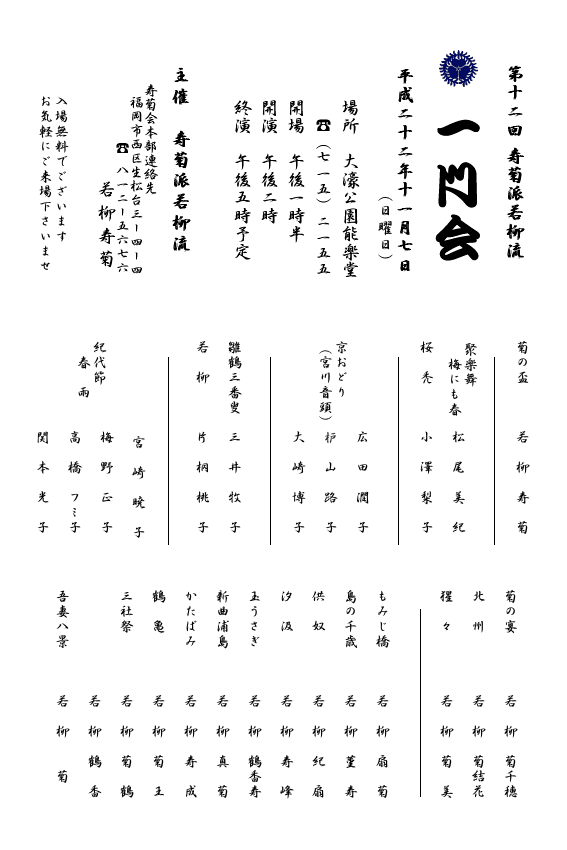 第十二回 寿菊派若柳流
一川会
平成二十二年十一月七日
（日曜日）
場所 大濠公園能楽堂
☎（七一五）二一五五
開場 午後一時半
開演 午後二時
終演 午後五時予定
主催 寿菊派若柳流
寿菊会本部連絡先
福岡市西区生松台三ー四ー四
☎ 八一二ー五六七六
若柳寿菊
入場無料でございます
お気軽にご来場下さいませ
菊の盃 若柳寿菊
聚楽舞
梅にも春 松尾美紀
桜禿 小澤梨子
京おどり
（宮川音頭） 広田潤子
山路子
大崎博子
雛鶴三番叟 三井牧子
若柳 片桐桃子
紀代節
春雨 宮崎暁子
梅野正子
高橋フミ子
関本光子
菊の宴 若柳菊千穂
北州 若柳菊結花
猩々 若柳菊美
もみじ橋 若柳扇菊
島の千歳 若柳菫寿
供奴 若柳紀扇
汐汲 若柳寿峰
玉うさぎ 若柳鶴香寿
新曲浦島 若柳真菊
かたばみ 若柳寿成
鶴亀 若柳菊王
三社祭 若柳菊鶴
若柳鶴香
吾妻八景 若柳菊